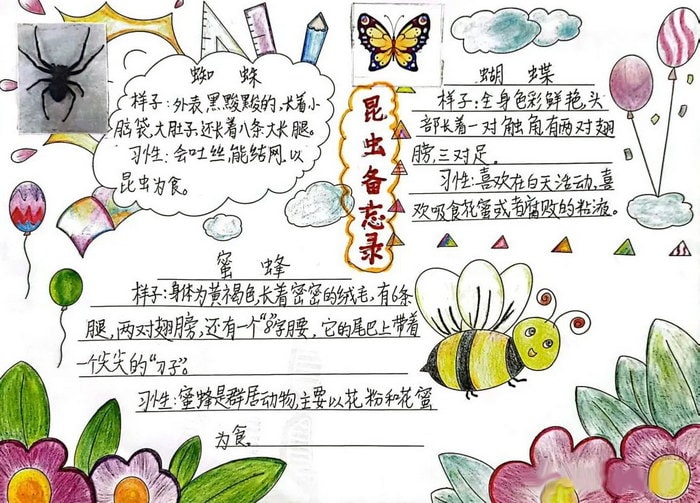 昆虫备忘录
蜘蛛
样子:外表黑黢黢的,长着小
脑袋,大肚子,还长着八条大长腿。
习性:会吐丝,能结网,以
昆虫为食。
蝴蝶
样子:全身色彩鲜艳,头
部长着一对触角,有两对翅
膀,三对足。
习性:喜欢在白天活动,喜
欢吸食花蜜或者腐败的粘液。
蜜蜂
样子:身体为黄褐色,长着密密的绒毛,有6条
腿,两对翅膀,还有一个“8”字腰,它的尾巴上带着
一个尖尖的“刀子”。
习性:蜜蜂是群居动物,主要以花粉和花蜜
为食。